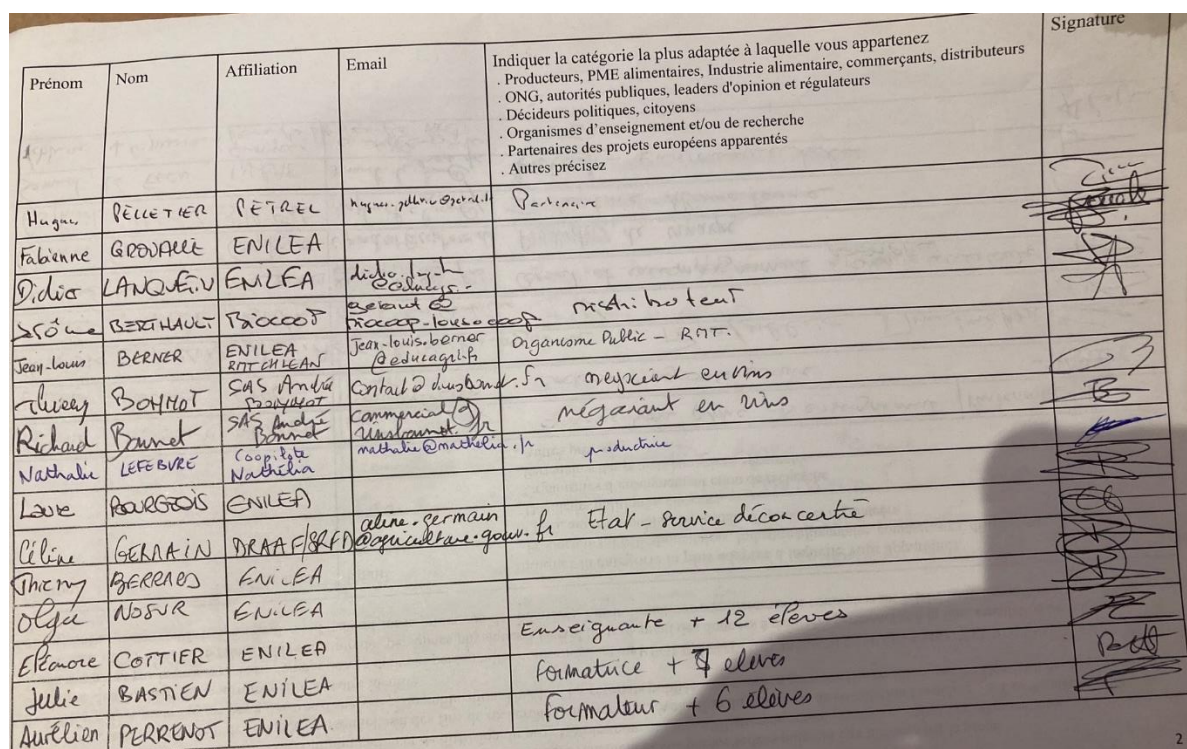 Prénom Nom Affiliation Email Indiquer la catégorie la plus adaptée à laquelle vous appartenez Signature
. Producteurs, PME alimentaires, Industrie alimentaire, commerçants, distributeurs
. ONG, autorités publiques, leaders d'opinion et régulateurs
. Décideurs politiques, citoyens
. Organismes d'enseignement et/ou de recherche
. Partenaires des projets européens apparentés
. Autres précisez
Hugues PELLETIER PETREL Partenaire
Fabienne GROVALLE ENILEA
Didier LANQUETIN ENILEA
BERTHAULT Biocoop gerant @ distributeur
Jean-Louis BERNER ENILEA Jean-louis.berner Organisme Public - RMT.
RMT CHLEAN @educagri.fr
Thierry BONNOT SAS André negociant en vins
Richard Bonnet SAS André commercial@ négociant en vins
Bonnet vinsbonnet.fr
Nathalie LEFEBVRE Coopilote nathalie@nathelia.fr productrice
Nathélia
Laure BOURGEOIS ENILEA
Céline GERMAIN DRAAF/SRFD aline.germain Etat - service déconcentré
@agriculture.gouv.fr
Thierry BERRARD ENILEA
Olga NOSUR ENILEA
Eléonore COTTIER ENILEA Enseignante + 12 élèves
Julie BASTIEN ENILEA formatrice + 7 eleves
Aurélien PERRENOT ENILEA formateur + 6 elèves
2